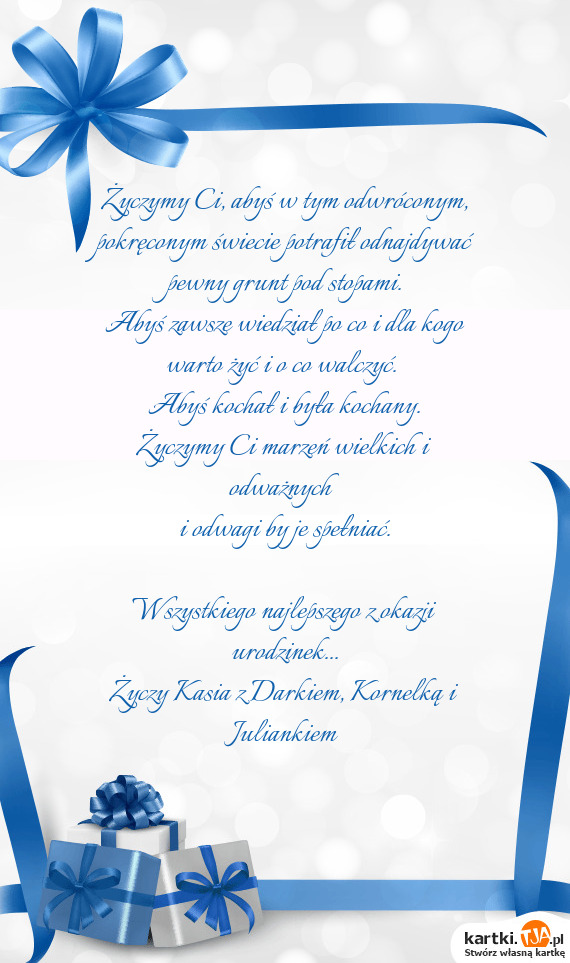 Życzymy Ci, abyś w tym odwróconym,
pokręconym świecie potrafił odnajdywać
pewny grunt pod stopami.
Abyś zawsze wiedział po co i dla kogo
warto żyć i o co walczyć.
Abyś kochał i była kochany.
Życzymy Ci marzeń wielkich i
odważnych
i odwagi by je spełniać.
Wszystkiego najlepszego z okazji
urodzinek...
Życzy Kasia z Darkiem, Kornelką i
Juliankiem
kartki.TJA.pl
Stwórz własną kartkę